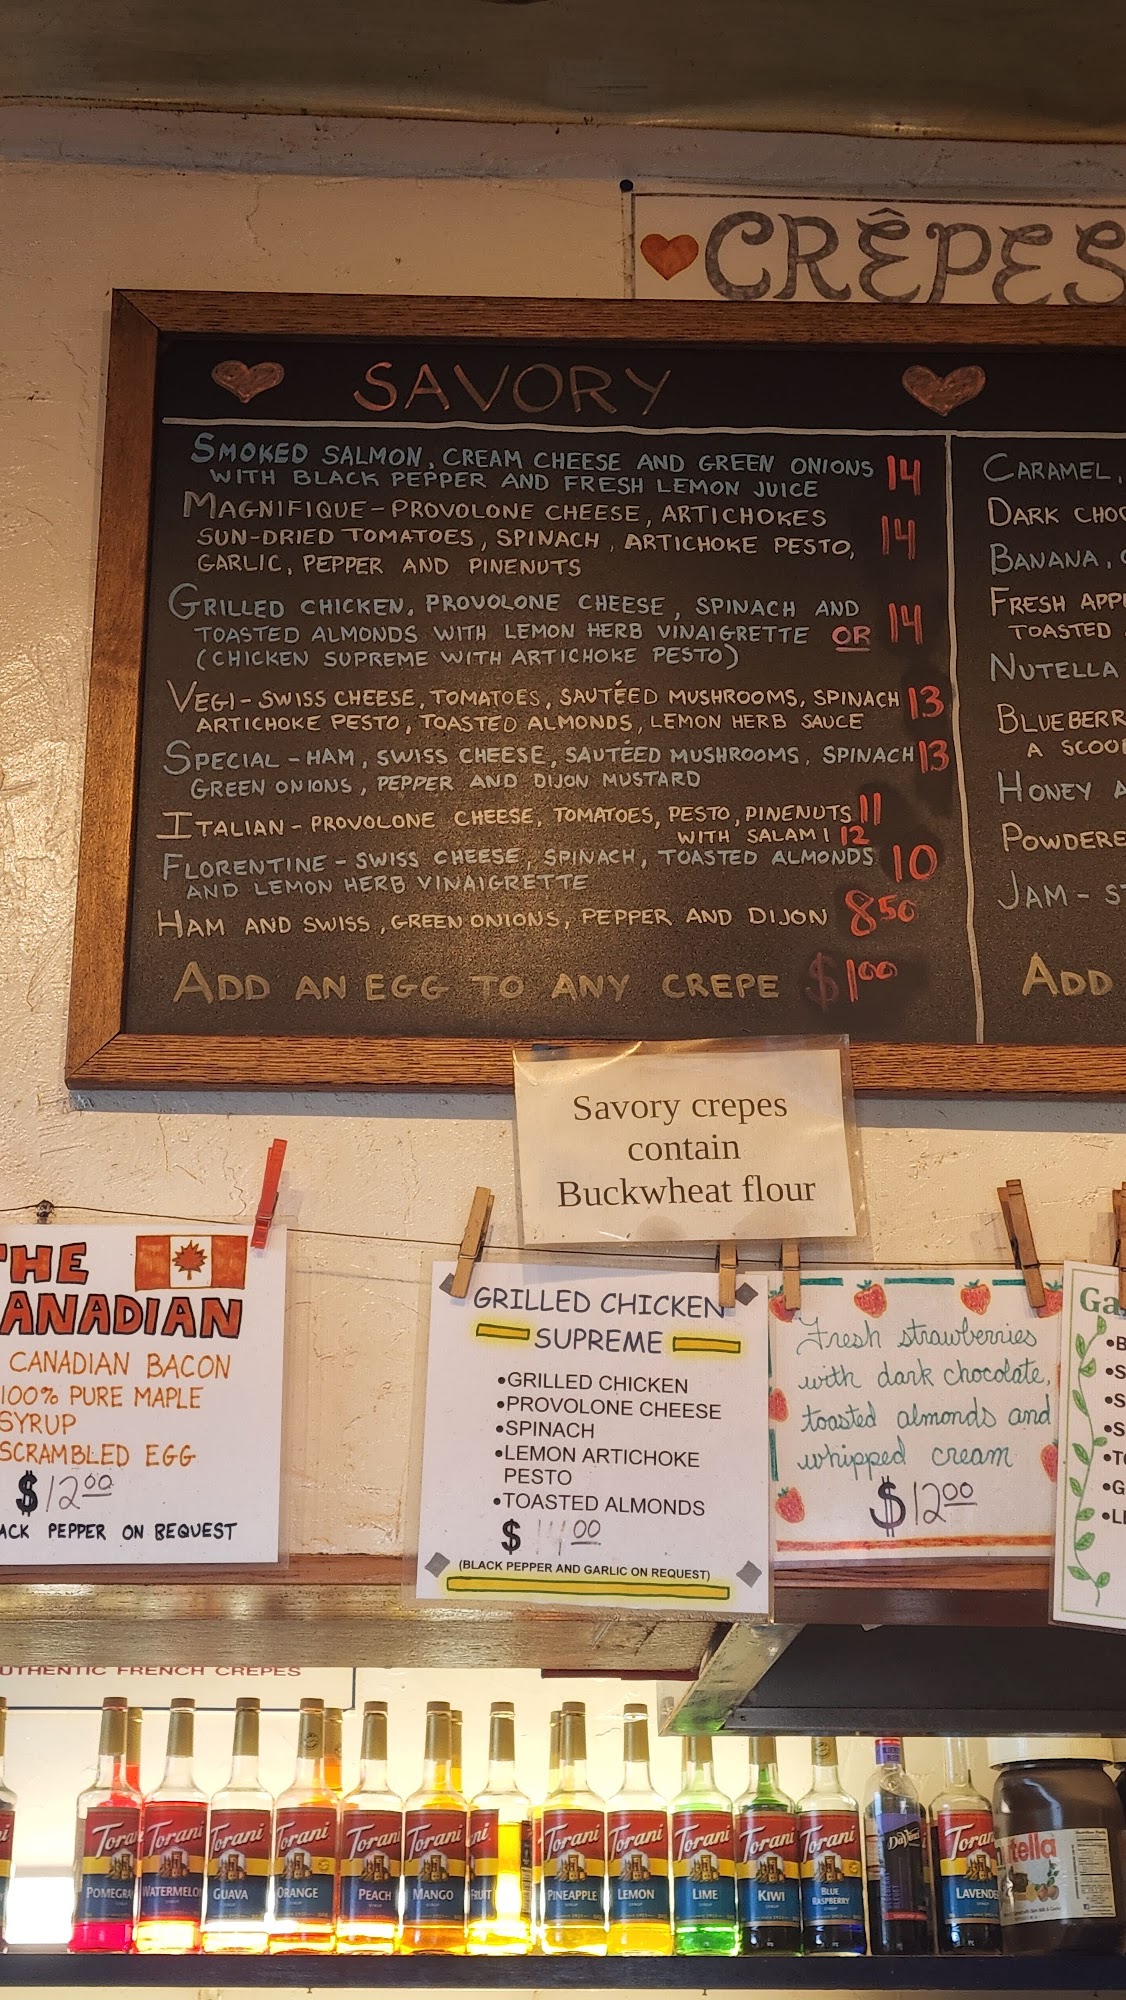 CRÊPES
SAVORY
SMOKED SALMON, CREAM CHEESE AND GREEN ONIONS 14
WITH BLACK PEPPER AND FRESH LEMON JUICE
MAGNIFIQUE - PROVOLONE CHEESE, ARTICHOKES
SUN-DRIED TOMATOES, SPINACH, ARTICHOKE PESTO, 14
GARLIC, PEPPER AND PINENUTS
GRILLED CHICKEN, PROVOLONE CHEESE, SPINACH AND
TOASTED ALMONDS WITH LEMON HERB VINAIGRETTE OR 14
(CHICKEN SUPREME WITH ARTICHOKE PESTO)
VEGI - SWISS CHEESE, TOMATOES, SAUTÉED MUSHROOMS, SPINACH 13
ARTICHOKE PESTO, TOASTED ALMONDS, LEMON HERB SAUCE
SPECIAL - HAM, SWISS CHEESE, SAUTÉED MUSHROOMS, SPINACH 13
GREEN ONIONS, PEPPER AND DIJON MUSTARD
ITALIAN - PROVOLONE CHEESE, TOMATOES, PESTO, PINENUTS 11
WITH SALAMI 12
FLORENTINE - SWISS CHEESE, SPINACH, TOASTED ALMONDS 10
AND LEMON HERB VINAIGRETTE
HAM AND SWISS, GREEN ONIONS, PEPPER AND DIJON 8 50
ADD AN EGG TO ANY CREPE $1 00
CARAMEL,
DARK CHO
BANANA,
FRESH APP
TOASTED
NUTELLA
BLUEBERR
A SCOO
HONEY A
POWDERE
JAM - ST
ADD
Savory crepes
contain
Buckwheat flour
THE
CANADIAN
CANADIAN BACON
100% PURE MAPLE
SYRUP
SCRAMBLED EGG
$12.00
ACK PEPPER ON BEQUEST
GRILLED CHICKEN
SUPREME
•GRILLED CHICKEN
•PROVOLONE CHEESE
•SPINACH
•LEMON ARTICHOKE
PESTO
•TOASTED ALMONDS
$ 14 00
(BLACK PEPPER AND GARLIC ON REQUEST)
Fresh strawberries
with dark chocolate,
toasted almonds and
whipped cream
$12 00
Ga
•B
•S
•S
•S
•TO
•G
•LE
UTHENTIC FRENCH CREPES
Torani POMEGRA
Torani WATERMELO
Torani GUAVA
Torani ORANGE
Torani PEACH
Torani MANGO
ani FRUIT
Torani PINEAPPLE
Torani LEMON
Torani LIME
Torani KIWI
Torani BLUE RASPBERRY
DaVinci
Toran LAVENDE
nutella